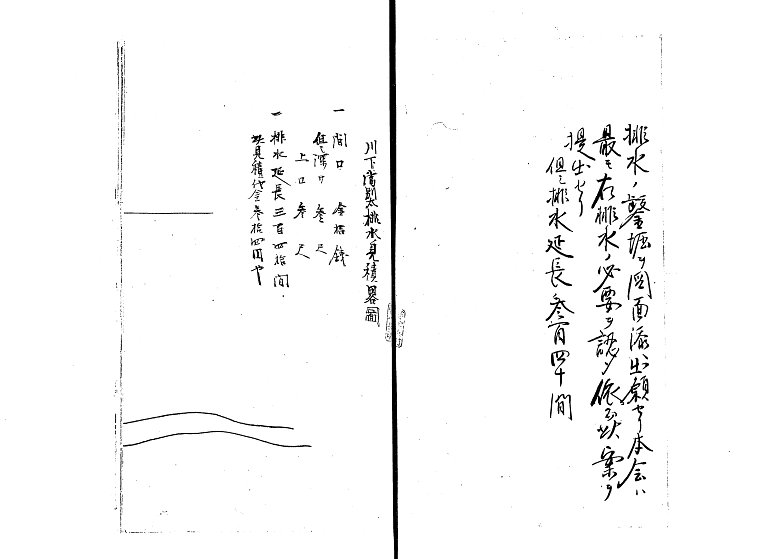 排水ノ鑿掘ヲ図面添出願セリ本会ハ
最モ右排水ノ必要ヲ認ム依而此案ヲ
提出セリ
但シ排水延長参百四十間
川下 排水見積畧圖
一 間口 金拾銭
但シ深サ参尺
上口参尺
一 排水延長三百四拾間
此見積代金参拾四円也